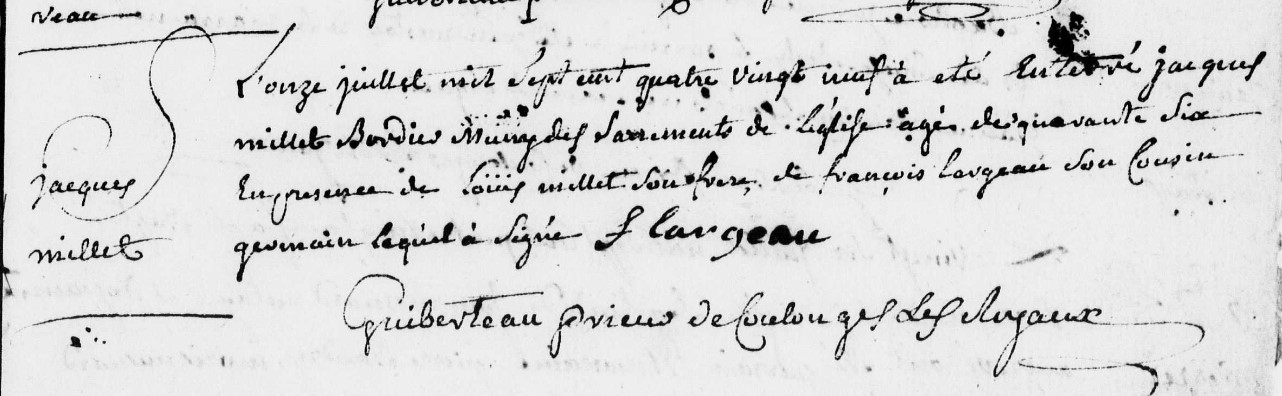 veau
L'onze juillet mil sept cent quatre vingt neuf à eté Enterré jacques
millet Bordier Muny des sacrements de l'églisse agé de quarante six
En presence de Loüis millet son frere, de françois largeau son Cousin
germain lequel à signé f largeau
jacques
millet
Guiberteau prieur de Coulonges Les Royaux